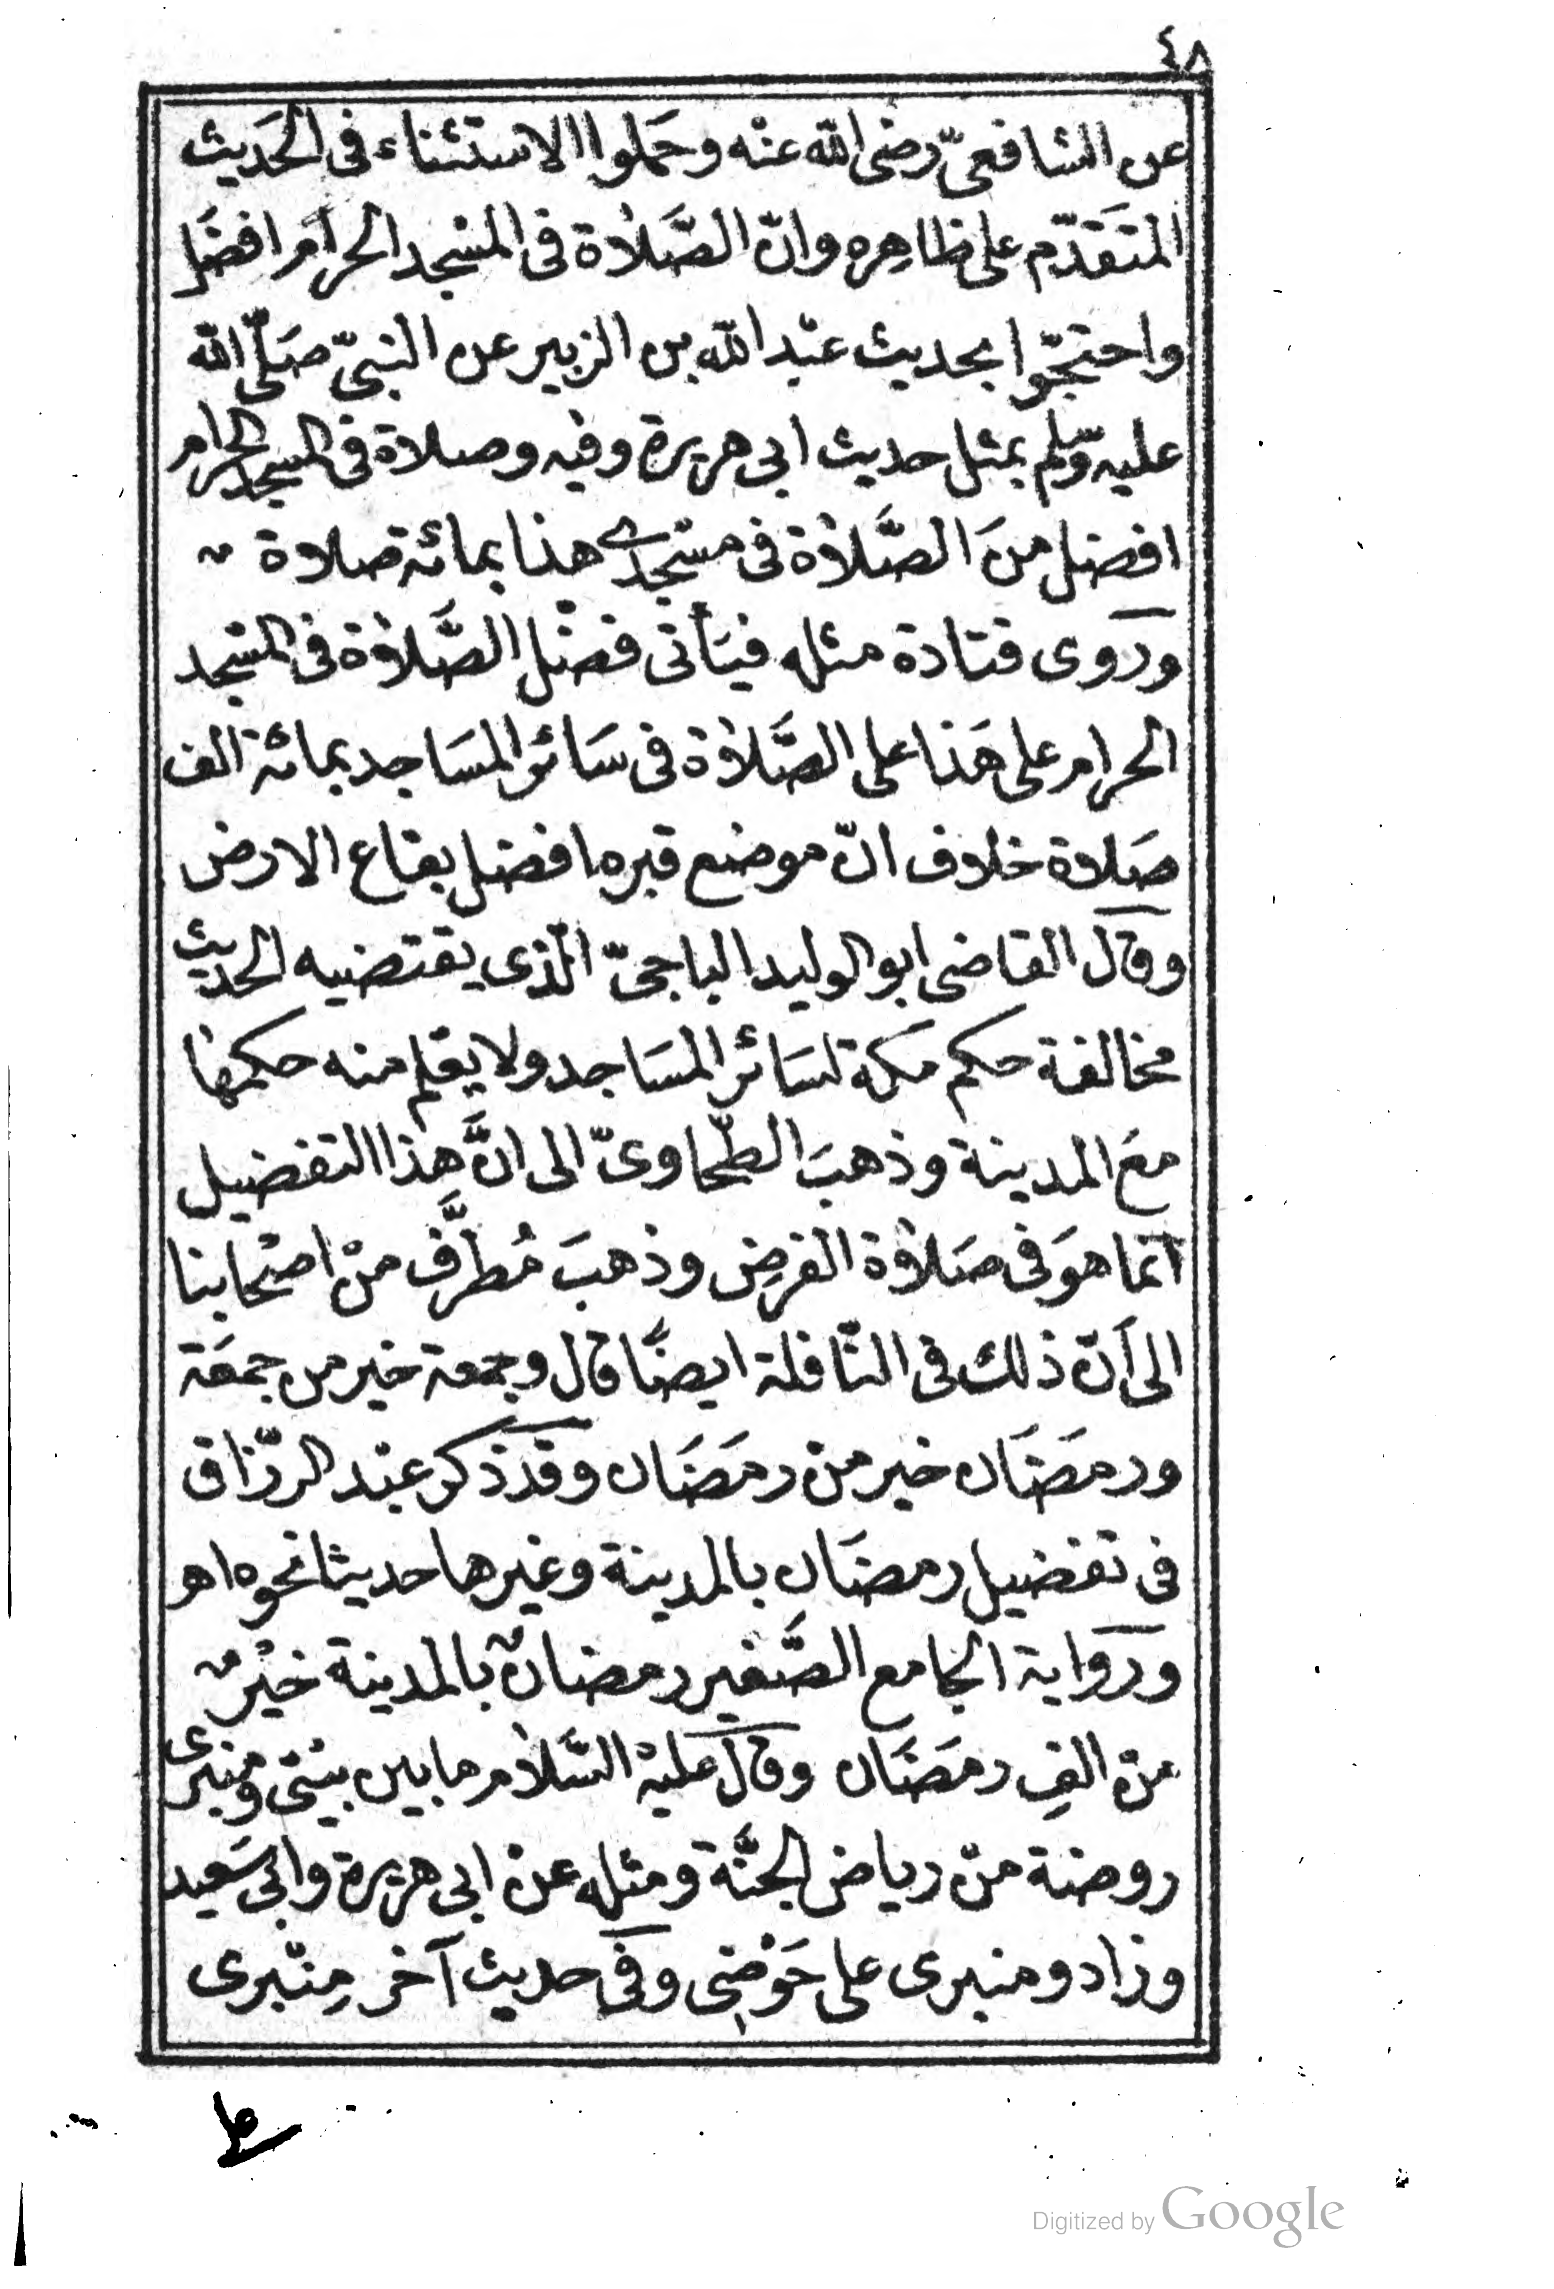 ٤٨
عن الشافعىّ رضى الله عنه وحَملوا الاستثناء فى الحَديث
المتقَدّم على ظاهِره وانّ الصَّلاٰة فى المسْجد الحرام افضَل
واحتجّوا بحديث عبْد الله بن الزبير عن النبىّ صَلّى الله
عليه وسّلم بمثل حديث ابى هريرة وفيه وصلاة فى المسجد الحرام
افضل منَ الصَّلاٰة فى مسْجدى هذا بمائة صلاة
ورَوى قتادة مثله فيَأتى فضْل الصَّلاٰة فى المسْجد
الحرام على هَذا على الصَّلاٰة فى سَائر المسَاجد بمائة الف
صَلاة خلاف انّ موضع قبره افضل بقاع الارض
وقال القاضى ابو الوليد الباجىّ الّذى يقتضيه الحديث
مخالفة حكم مكة لسَائر المسَاجد ولا يعْلم منه حكمهَا
معَ المدينة وذهبَ الطّحاوىّ الى انَّ هٰذا التفضيل
انّما هوَ فى صَلاٰة الفرضِ وذهبَ مُطرَّف منْ اصْحابنا
الى اَنّ ذلك فى النّافلة ايضًا قال وجمعة خير من جمعَة
ورمضَان خير منْ رمَضَان وقدْ ذكر عبْد الرزّاق
فى تفضيل رمضَان بالمدينة وغيرها حديثا نحوه اهو
ورَواية الجامع الصَّغير رمضانٌ بالمدينة خيْر
منْ الفِ رمَضَان وقال عليْه السَّلاٰم ما بين بيْتى ومنبرى
روضة منْ رياض الجنَّة ومثله عنْ ابى هريرة وابى سَعيد
وزاد ومنبرى على حَوْضِى وفى حديث آخر مِنْبرى
على
Digitized by Google